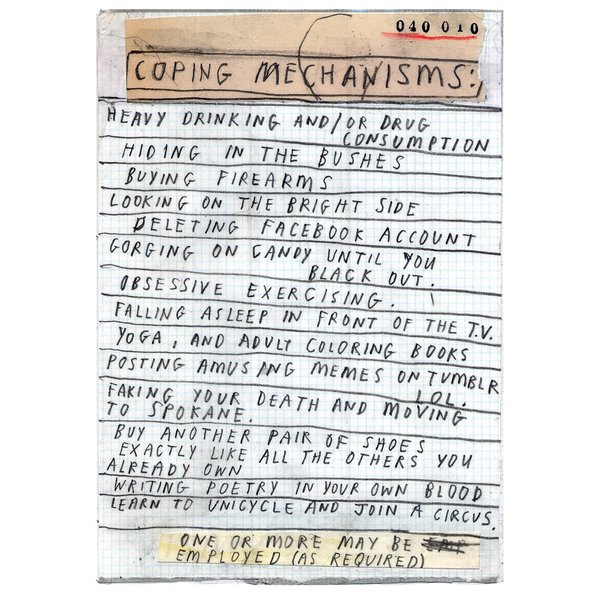 040 010
COPING MECHANISMS:
HEAVY DRINKING AND/OR DRUG
CONSUMPTION
HIDING IN THE BUSHES
BUYING FIREARMS
LOOKING ON THE BRIGHT SIDE
DELETING FACEBOOK ACCOUNT
GORGING ON CANDY UNTIL YOU
BLACK OUT.
OBSESSIVE EXERCISING.
FALLING ASLEEP IN FRONT OF THE T.V.
YOGA, AND ADULT COLORING BOOKS
POSTING AMUSING MEMES ON TUMBLR
LOL.
FAKING YOUR DEATH AND MOVING
TO SPOKANE.
BUY ANOTHER PAIR OF SHOES
EXACTLY LIKE ALL THE OTHERS YOU
ALREADY OWN
WRITING POETRY IN YOUR OWN BLOOD
LEARN TO UNICYCLE AND JOIN A CIRCUS.
ONE OR MORE MAY BE
EMPLOYED (AS REQUIRED)